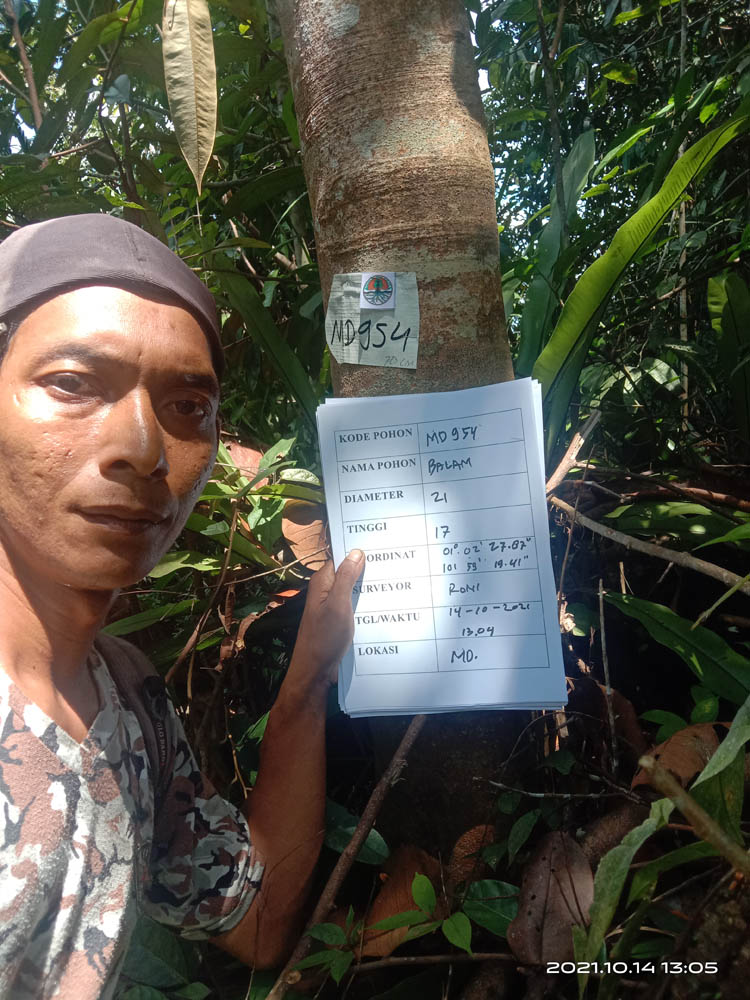 MD954
70 CM
KODE POHON MD954
NAMA POHON BALAM
DIAMETER 21
TINGGI 17
OORDINAT 01° 02' 27.87"
101 59' 19.41"
SURVEYOR RONI
TGL/WAKTU 14-10-2021
13.04
LOKASI MD.
2021.10.14 13:05